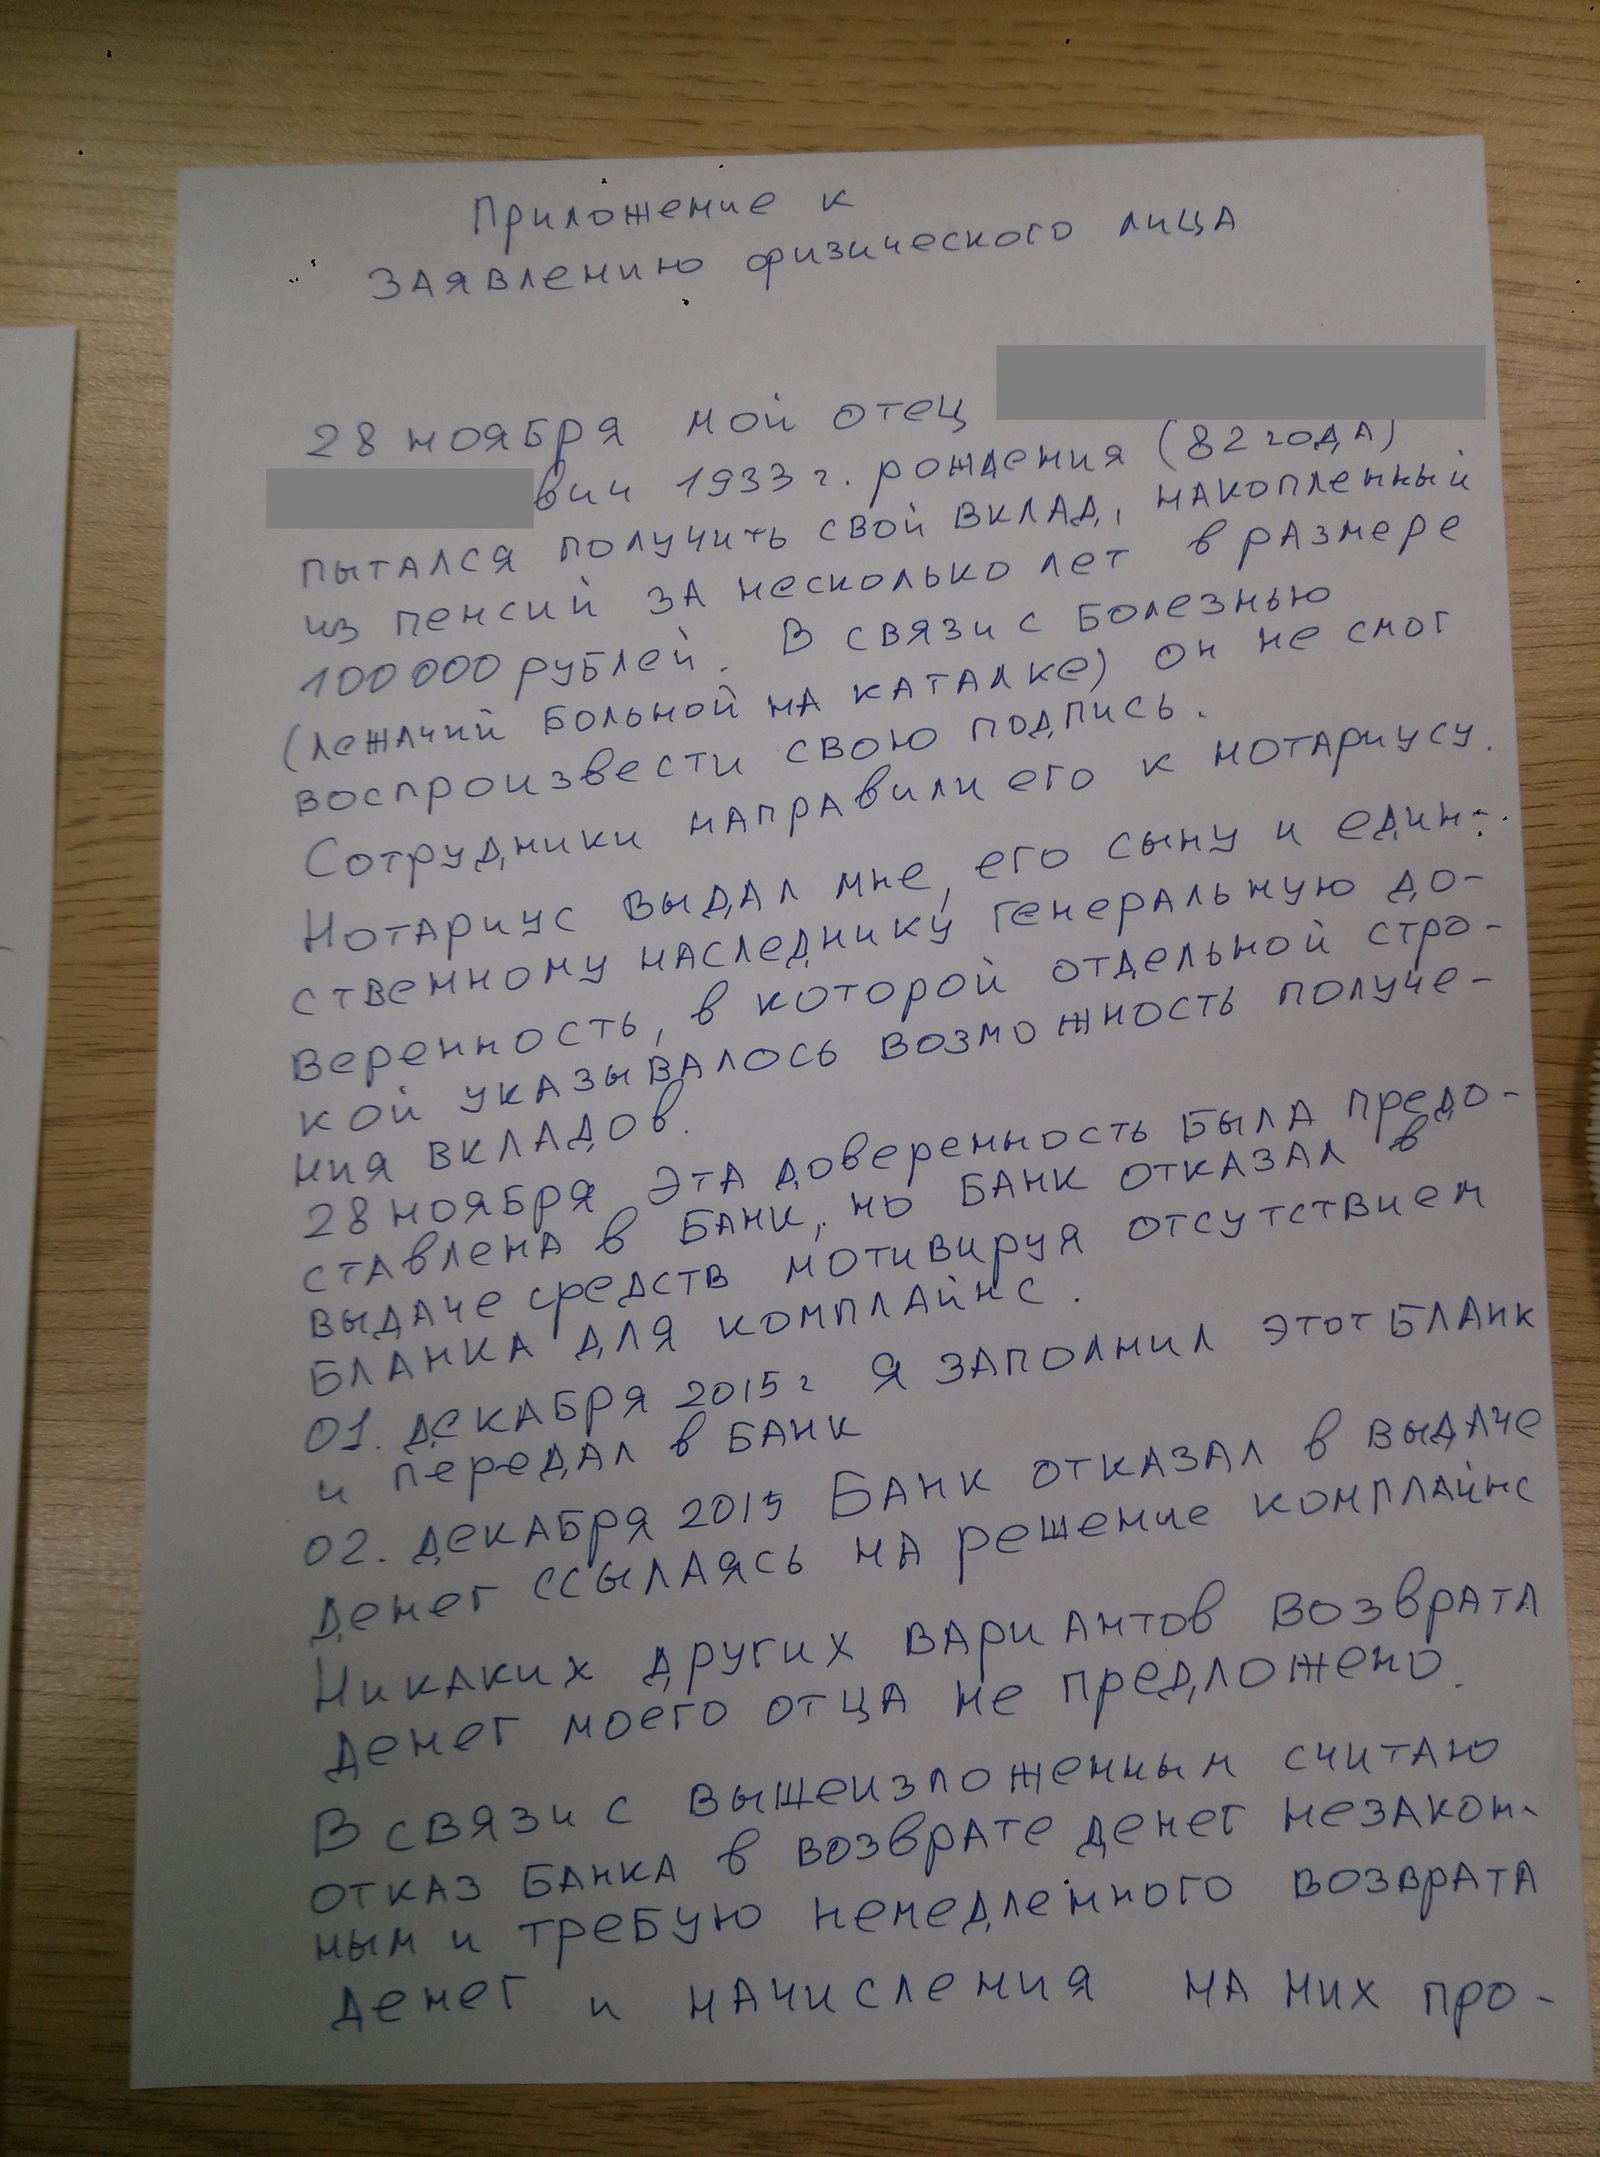 Приложение к
заявлению физического лица
28 ноября мой отец
вич 1933 г. рождения (82 года)
пытался получить свой вклад, накопленный
из пенсий за несколько лет в размере
100 000 рублей. В связи с болезнью
(лежачий больной на каталке) он не смог
воспроизвести свою подпись.
Сотрудники направили его к нотариусу.
Нотариус выдал мне, его сыну и един-
ственному наследнику генеральную до-
веренность, в которой отдельной стро-
кой указывалось возможность получе-
ния вкладов.
28 ноября эта доверенность была предо-
ставлена в банк, но банк отказал в
выдаче средств мотивируя отсутствием
бланка для комплайнс.
01. декабря 2015 г я заполнил этот бланк
и передал в банк
02. декабря 2015 Банк отказал в выдаче
денег ссылаясь на решение комплайнс
Никаких других вариантов возврата
денег моего отца не предложено.
В связи с вышеизложенным считаю
отказ банка в возврате денег незакон-
ным и требую немедленного возврата
денег и начисления на них про-